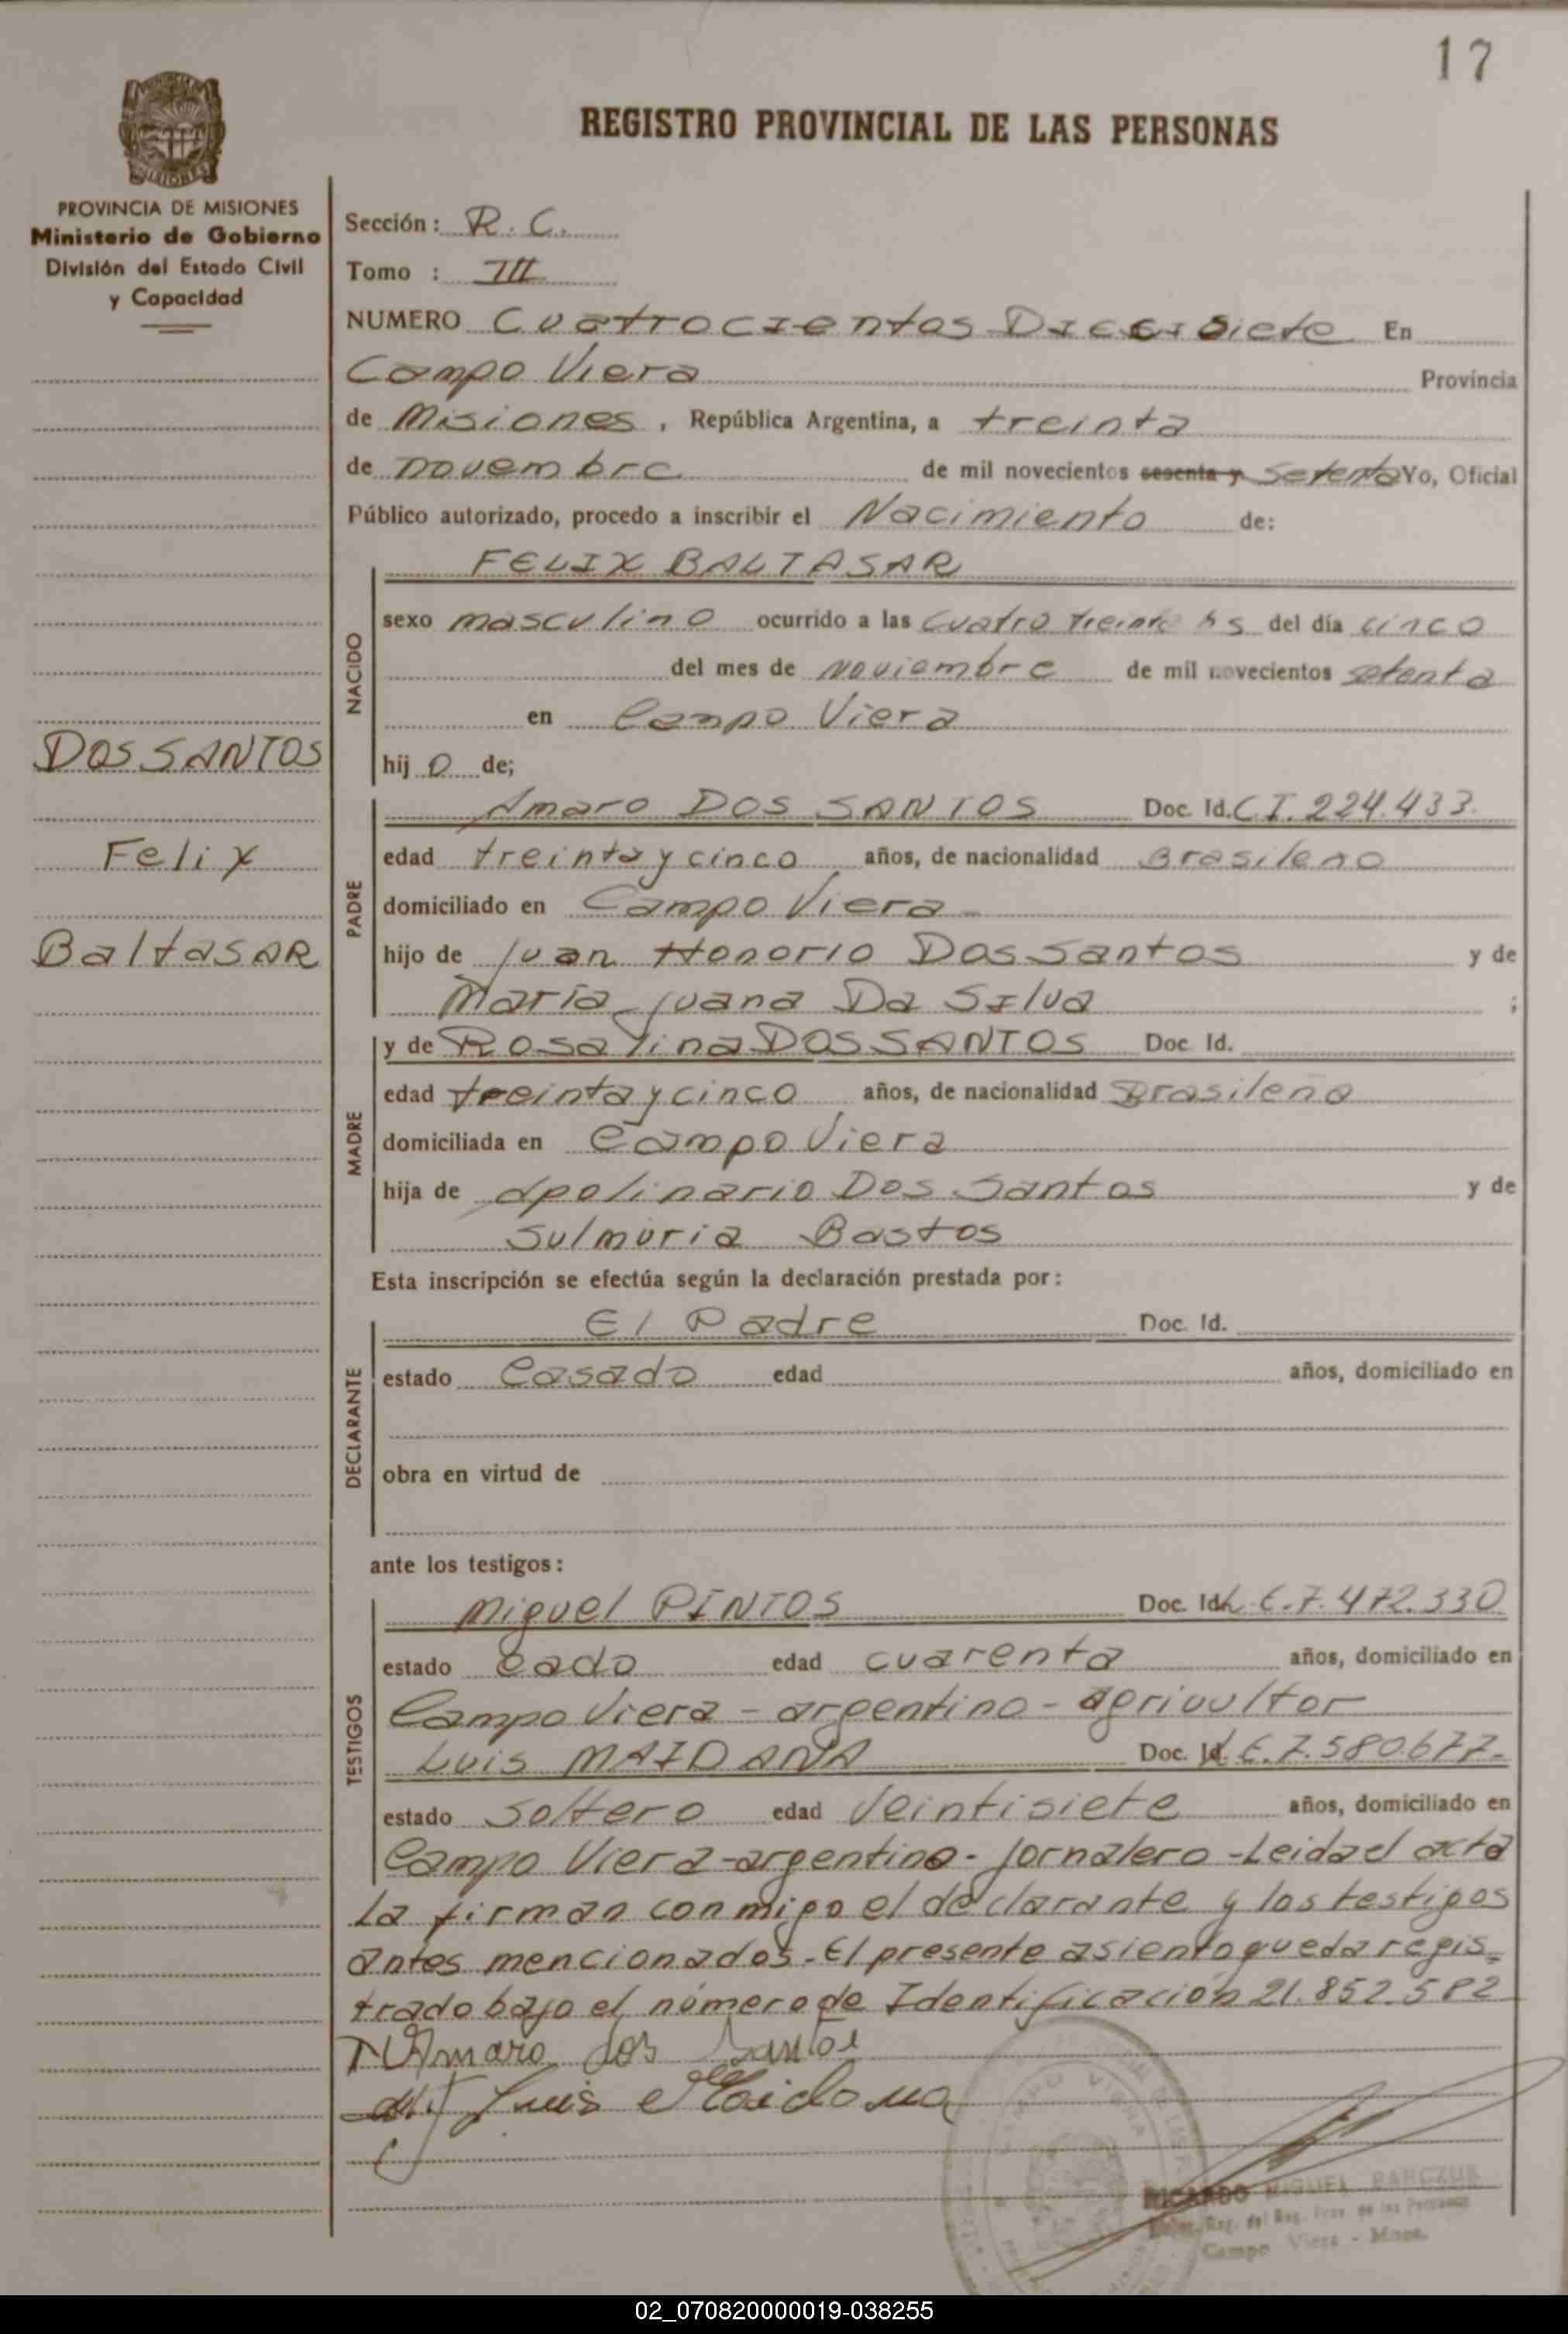 17
REGISTRO PROVINCIAL DE LAS PERSONAS
PROVINCIA DE MISIONES
Ministerio de Gobierno
División del Estado Civil
y Capacidad
DOS SANTOS
Felix
BaltasAR
Sección: R. C.
Tomo : III
NUMERO Cuatrocientos Diecisiete En
Campo Viera Provincia
de Misiones, República Argentina, a treinta
de novembre de mil novecientos sesenta y setenta Yo, Oficial
Público autorizado, procedo a inscribir el Nacimiento de:
NACIDO
FELIX BALTASAR
sexo masculino ocurrido a las cuatro treinta hs del día cinco
del mes de noviembre de mil novecientos setenta
en Campo Viera
hij o de;
PADRE
Amaro DOS SANTOS Doc. Id. C.I. 224.433.
edad treinta y cinco años, de nacionalidad Brasileno
domiciliado en Campo Viera
hijo de Juan Honorio Dos Santos y de
María Juana Da Silva ;
MADRE
y de Rosalina DOS SANTOS Doc Id.
edad treinta y cinco años, de nacionalidad Brasileña
domiciliada en Campo Viera
hija de Apolinario Dos Santos y de
Sulmuria Bastos
Esta inscripción se efectúa según la declaración prestada por:
DECLARANTE
El Padre Doc. Id.
estado Casado edad años, domiciliado en
obra en virtud de
ante los testigos:
TESTIGOS
Miguel PINTOS Doc. Id. L.E. 7.472.330
estado Cado edad cuarenta años, domiciliado en
Campo Viera - argentino - agricultor
Luis MAIDANA Doc. Id. L.E. 7.580.677.
estado soltero edad Veintisiete años, domiciliado en
Campo Viera - argentino - Jornalero - Leida el acta
la firman conmigo el declarante y los testigos
antes mencionados. El presente asiento queda regis-
trado bajo el número de Identificación 21.852.582
Amaro dos Santos
Luis Maidana
CAMPO VIERA
RICARDO MIGUEL
Reg. del Reg. Prov. de las Personas
Campo Viera - Mnes.
02_070820000019-038255